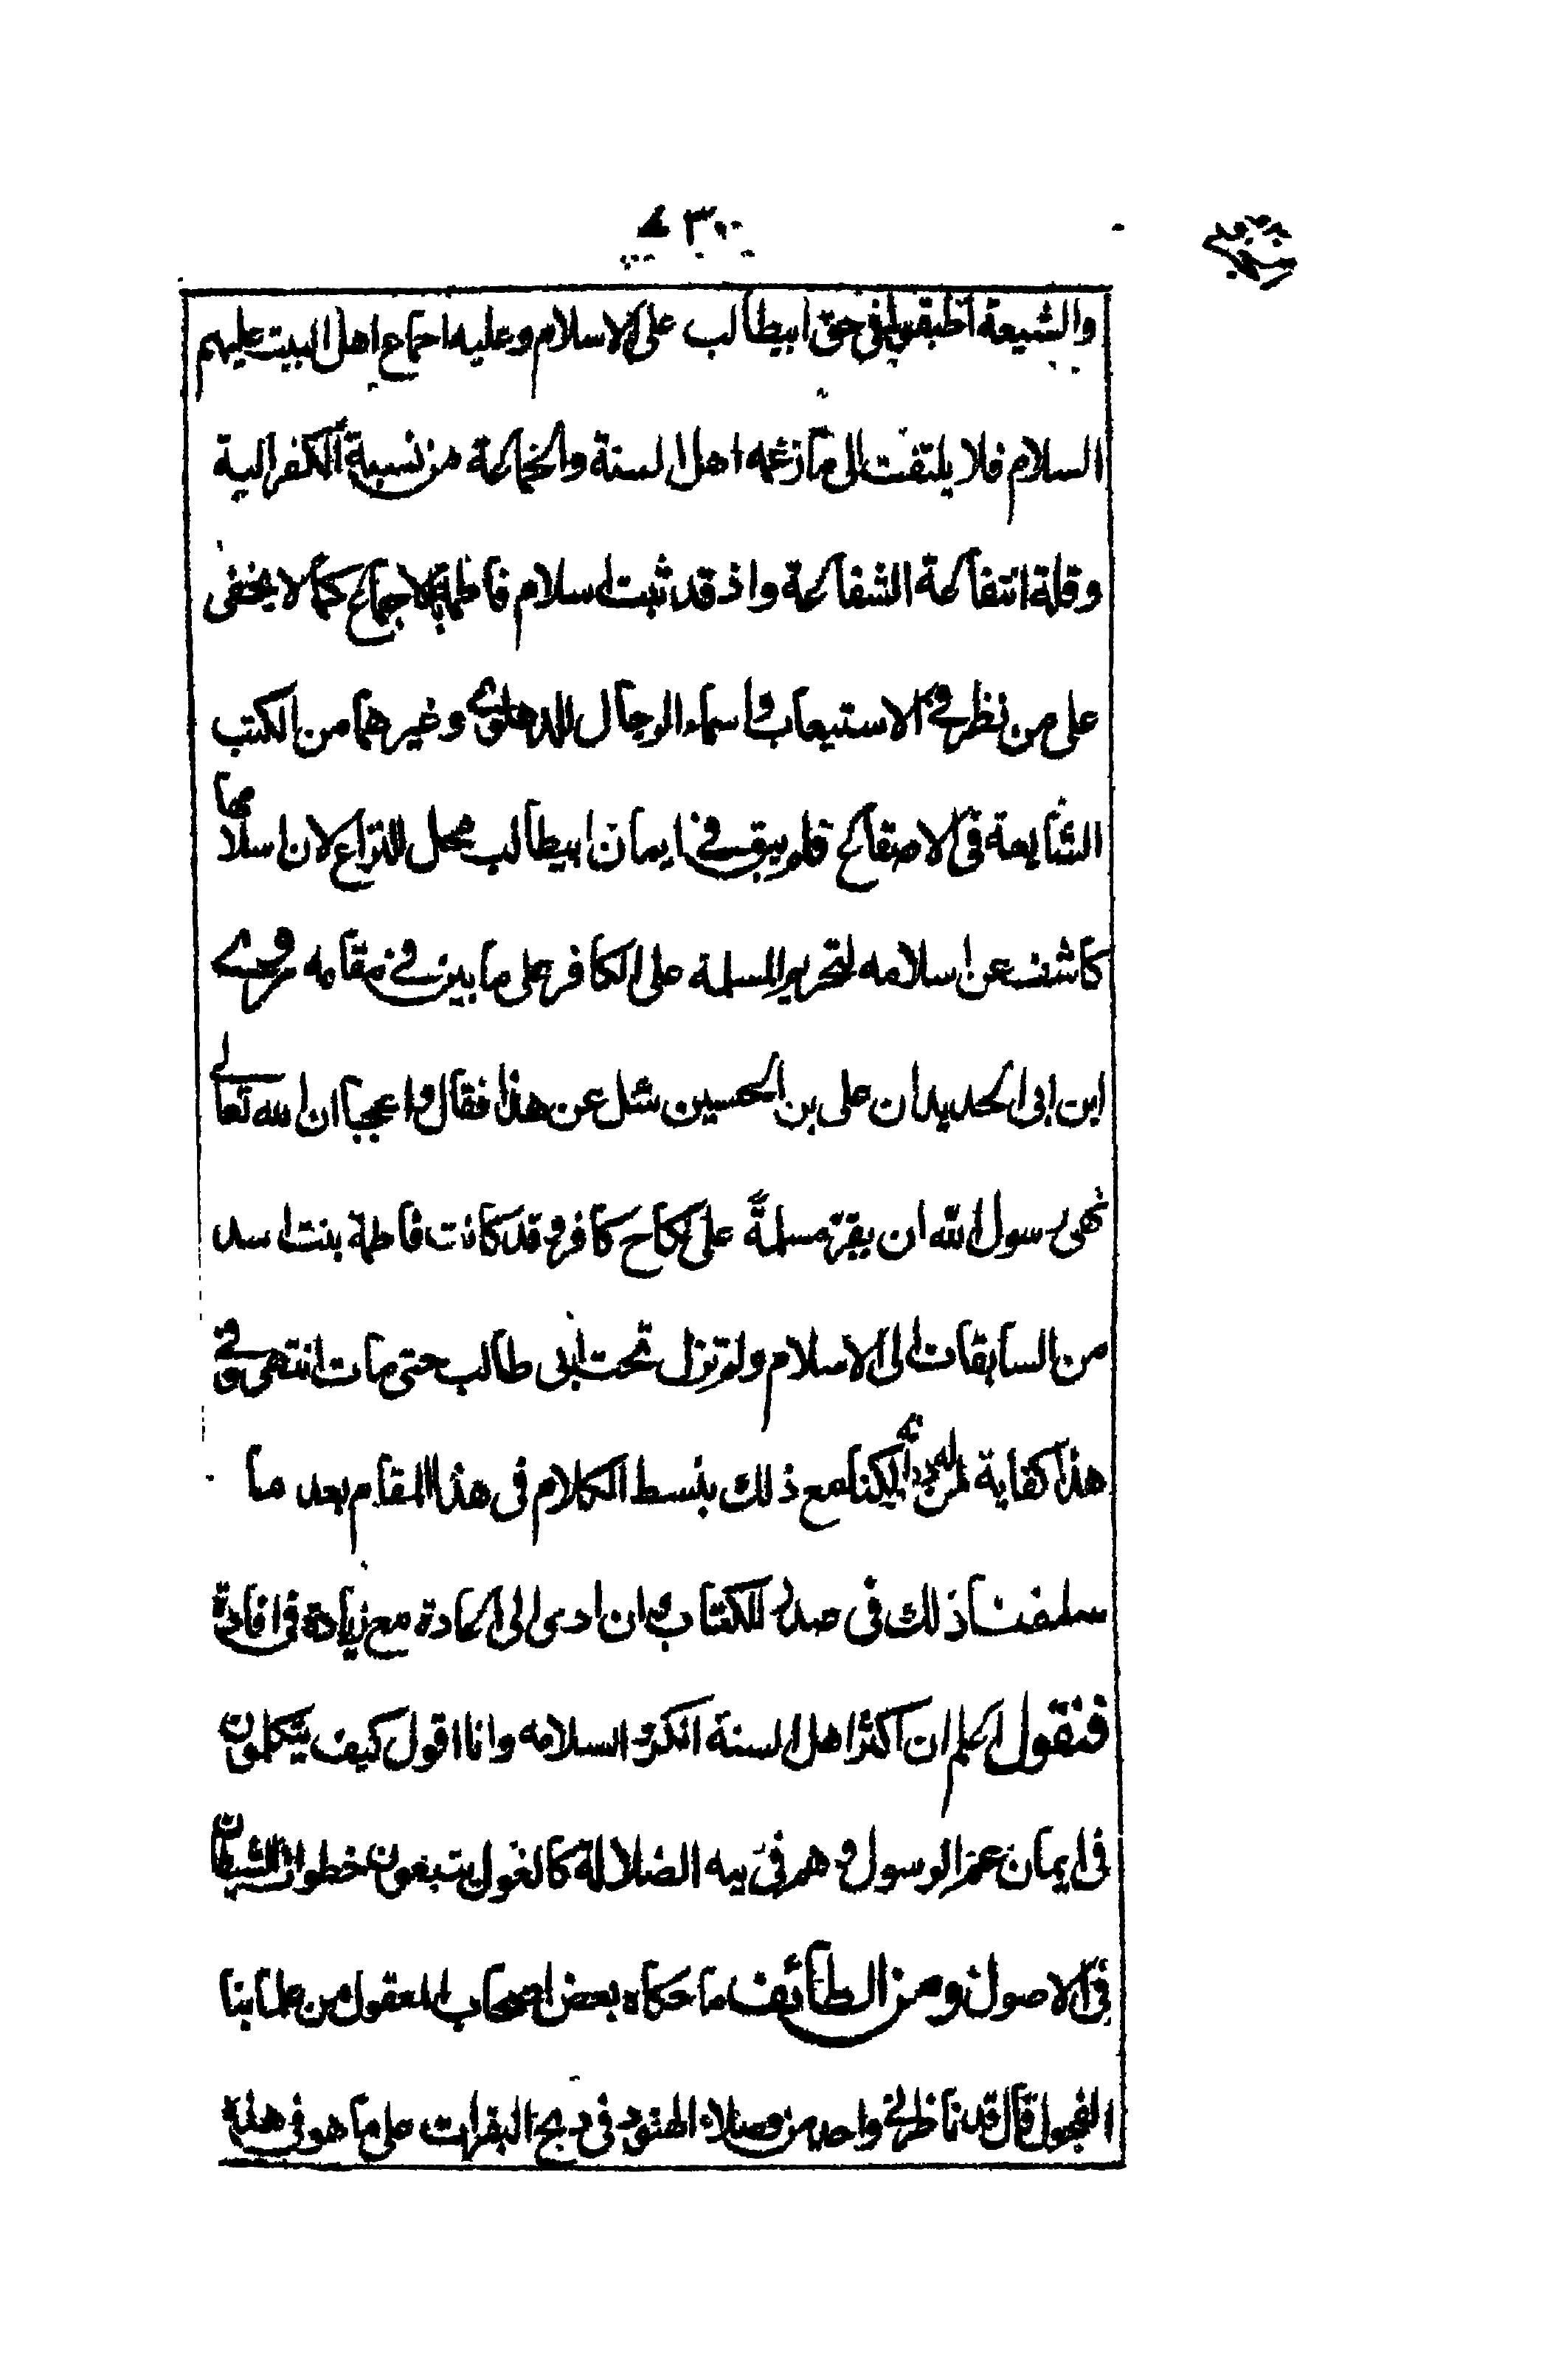 ٣٠٠
والشيعة اطبقوا في حق ابيطالب على الاسلام وعليه اجماع اهل البيت عليهم
السلام فلا يلتفت الى ما زعمه اهل السنة والجماعة من نسبة الكفر اليه
وقلة انتفاعه الشفاعة واذ قد ثبت اسلام فاطمة بالاجماع كما لا يخفى
على من نظر في الاستيعاب واسماء الرجال للدهلوي وغيرهما من الكتب
الشايعة في الاصقاع فلم يبق في ايمان ابيطالب محل للنزاع لان اسلامها
كاشف عن اسلامه لتحريم المسلمة على الكافر على ما بين في مقامه وروى
ابن ابي الحديد ان علي بن الحسين سئل عن هذا فقال واعجبا ان الله تعالى
نهى رسول الله ان يقر مسلمة على نكاح كافر وقد كانت فاطمة بنت اسد
من السابقات الى الاسلام ولم تزل تحت ابي طالب حتى مات انتهى وفي
هذا كفاية لمن له لكنا مع ذلك بنسط الكلام في هذا المقام بعد ما
سلفنا ذلك في صدر الكتاب وان ادى الى اعادة مع زيادة في افادة
فنقول اعلم ان اكثر اهل السنة انكروا اسلامه وانا اقول كيف يتكلمون
في ايمان عم الرسول وهم في تيه الضلالة كالغول يتبعون خطوات الشيطان
في الاصول ومن الطائف ما حكاه بعض اصحاب المعقول من علمائنا
الفحول قال قد ناظرني واحد من فضلاء الهنود في ذبح البقرات على ما هو في هذه